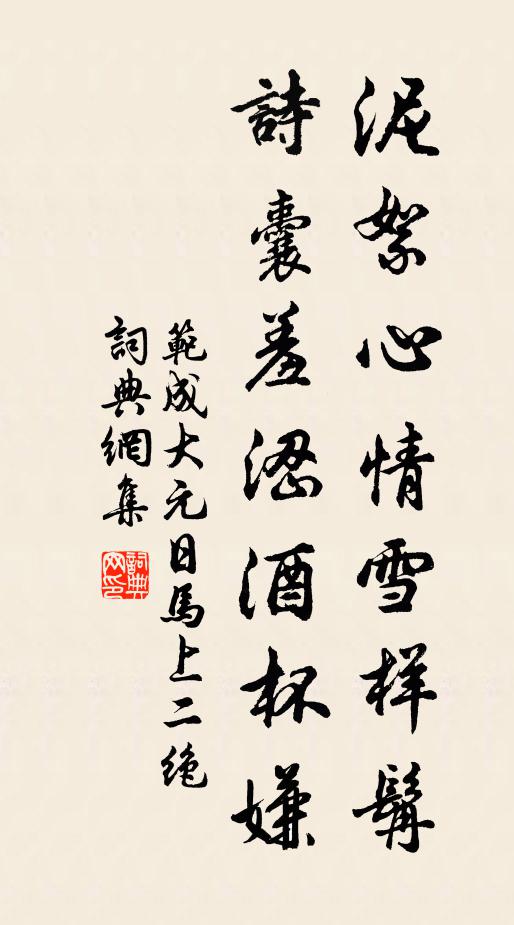 泥絮心情雪样鬓
詩囊羞澀酒杯嫌
範成大元日馬上二絶
詞典網集
詞典网印